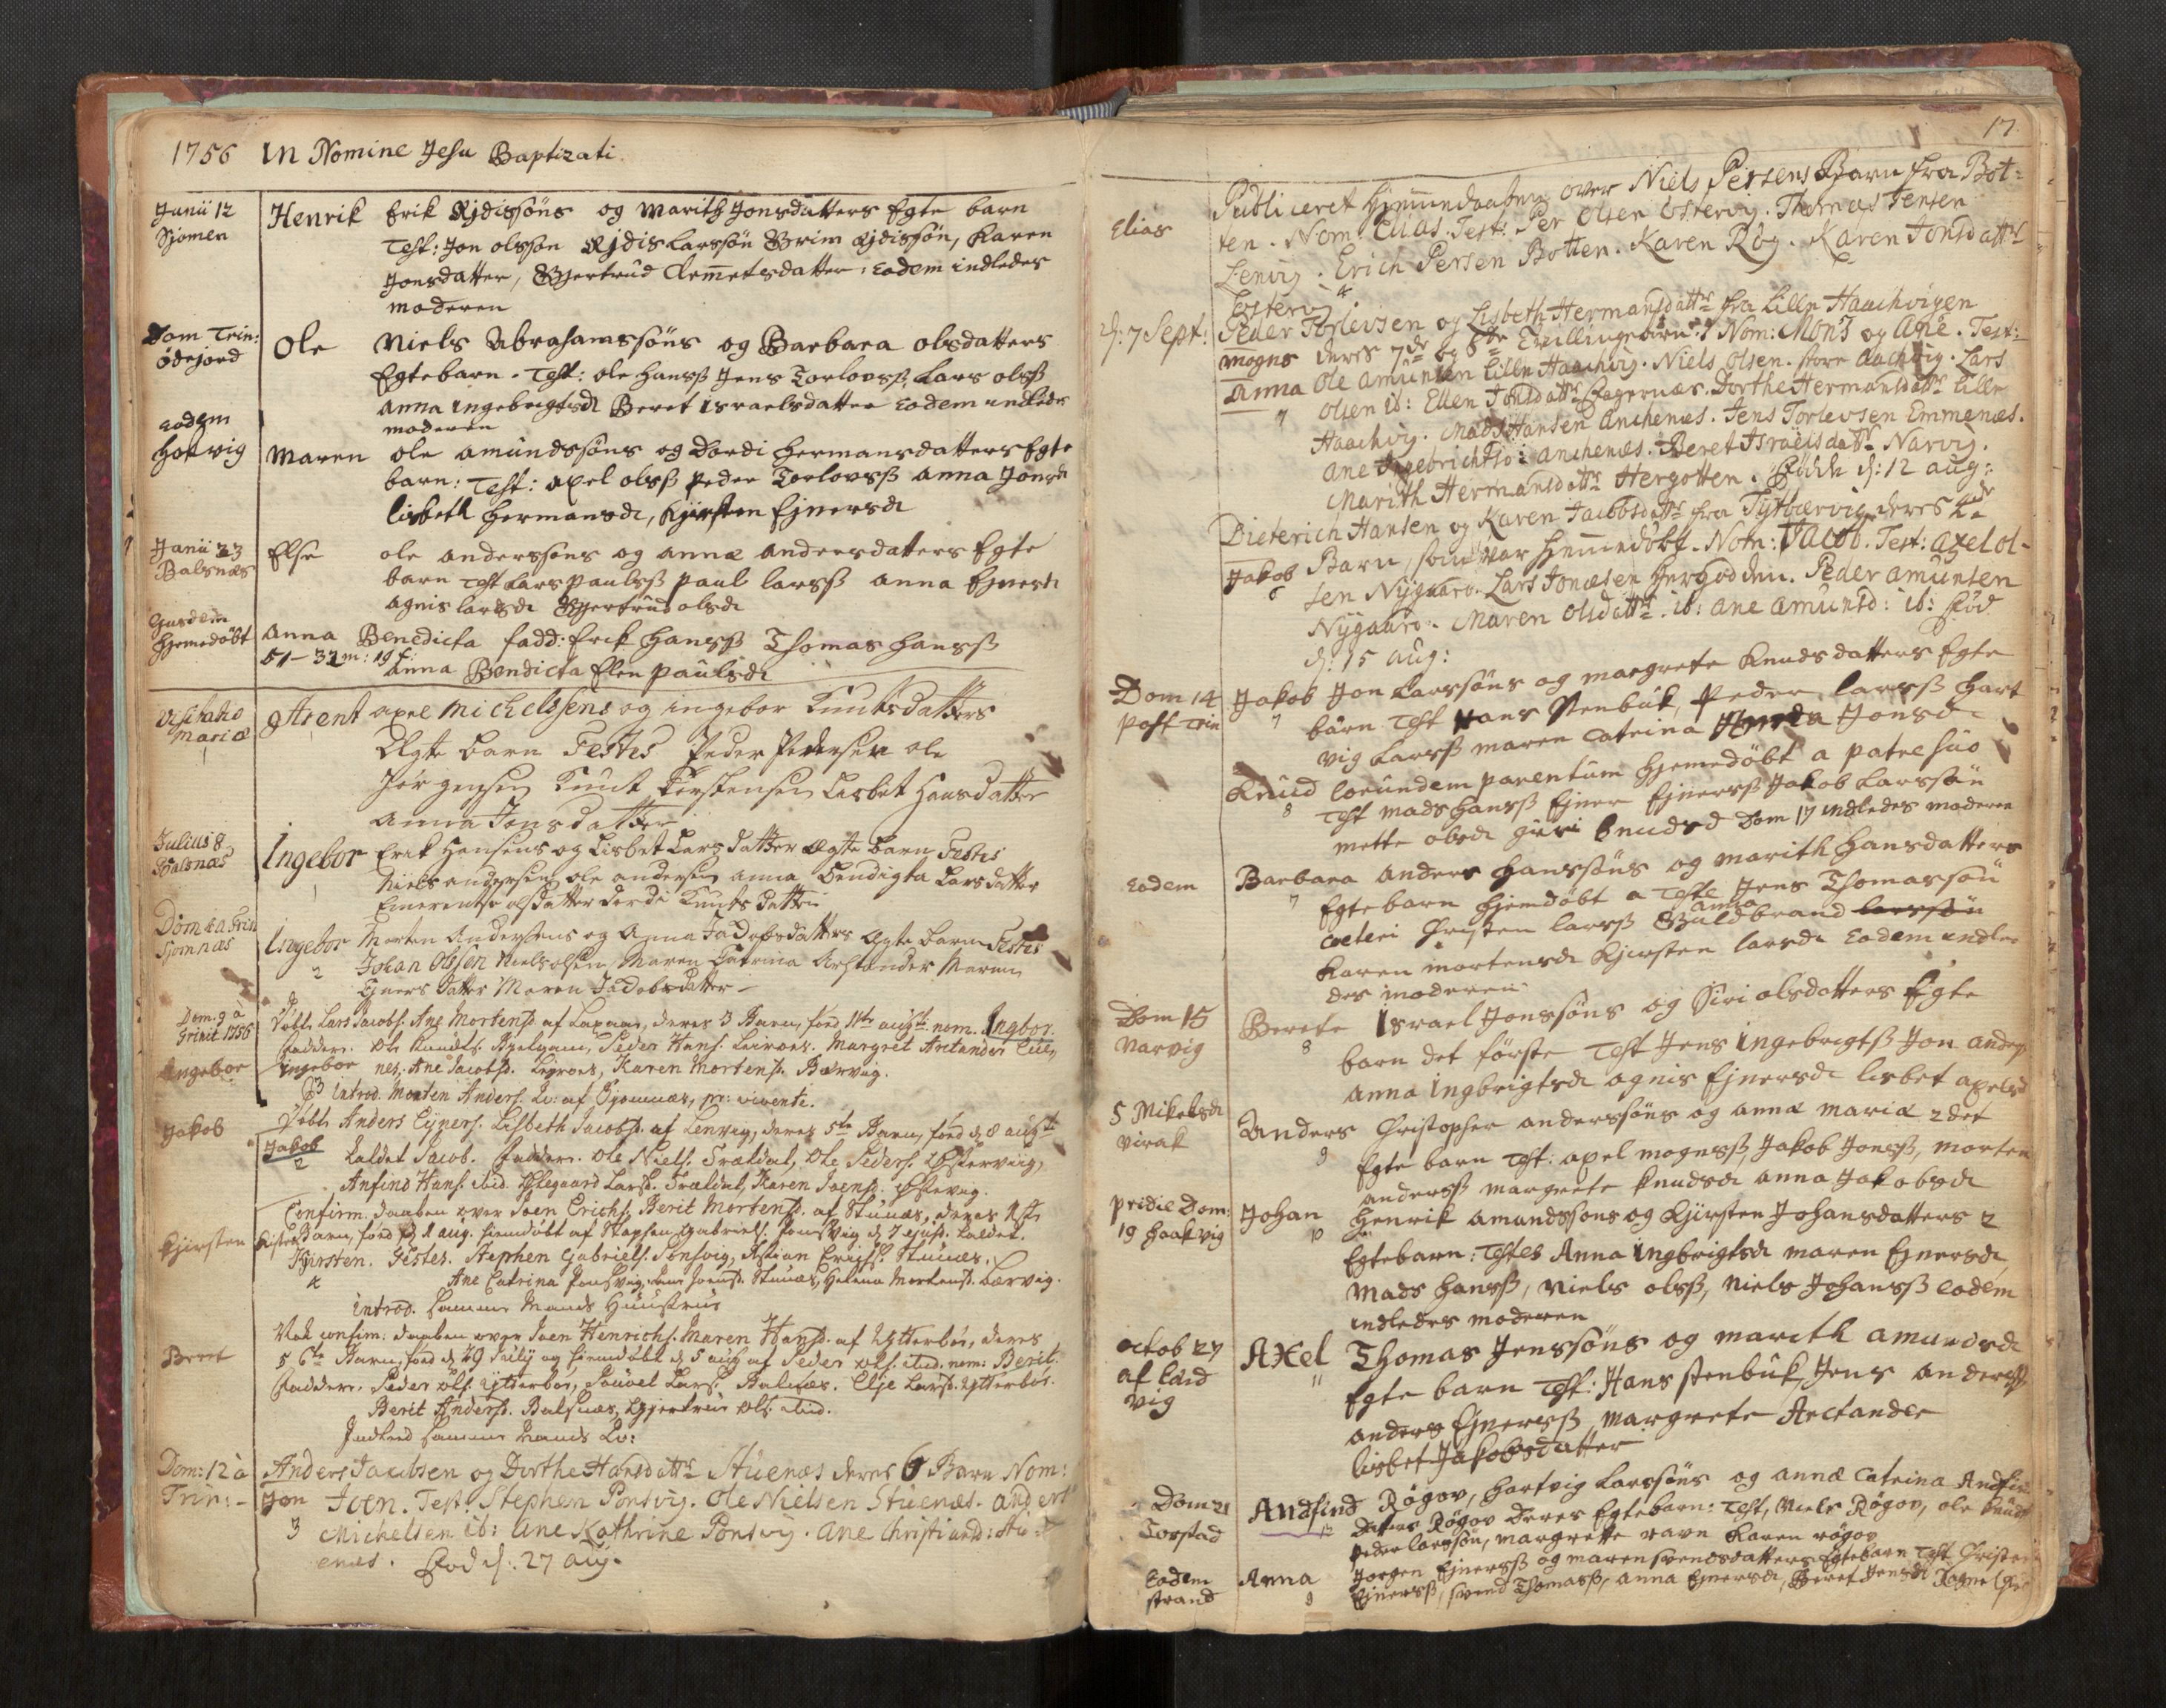 1756 In Nomine Jesu Baptizati
Junii 12 Henrik Erik Ajdissøns og Marith Jonsdatters Egte barn
Sjomen Test: Jon olssøn Ajdis Larssøn Grim Ajdissøn, Karen
Jonsdatter, Gjertrud Clemetsdatter: eodem indledes
moderen
Dom Trin: Ole Niels Abrahamssøns og Barbara olsdatters
Ødejord Egtebarn. Test: ole Hanss Jens Torlovss, Lars olss
anna ingebrigtsd Beret israelsdatter eodem indledes
moderen
eodem
Hokvig Maren ole amundssøns og Dordi Hermansdatters Egte
barn: Test: axel olss Peder Torlovss anna Jonsd
lisbeth Hermansd, Kjirsten Ejnersd
Junii 23 Else ole anderssøns og anna andersdatters Egte
Balsnæs barn Test Lars paulss paul larss anna Ejnersd
agnis larsd Gjertrud olsd
Ejusdem
hjemedøbt anna Benedicta fadd: Erik Hanss Thomas Hanss
51 - 32 m: 19 f: anna Bendicta Elen paulsd
Visitatio Arent axel Michelssens og ingebor Knutsdatters
Mariæ Ægte barn Testes Peder Pedersen ole
Jørgensen Knut Torstensen Lisbet Hansdatter
anna Jonsdatter
Julius 8 Ingebor Erik Hansens og Lisbet Larsdatter Ægte barn Testes
Balsnæs Niels andersen ole andersen anna Bendigta Larsdatter
Emerentse olsdatter Dordi Knutsdatter
Sjomnæs Ingebor Morten Andersens og Anna Jacobsdatters Ægte barn Testes
2 Johan Olssen Niels olsen Maren Catrina Arctander Maren
Ejnersdatter Maren Jacobsdatter
Dom. 9 à
Trinit 1756 Døbt Lars Jacobs. Ane Mortensd. af Lapaae, deres 3 Barn, fød 11te augti nom. Ingbor.
Faddere. Ole Knudts., Peder Hans. Leirnes. Margret Arctander
Ingebor Ingebor nes, Ane Jacobsd. Leirnes, Karen Mortensd. Bærvig.
3 Introd. Morten Anders. Qv: af Sjomnæs, pr: viventi.
Jakob Døbt Anders Ejners. Lisbeth Jacobsd. af Lenvig, deres 5te Barn, fød d. 8 augti
Jakob Kaldet Jacob. Faddere. Ole Niels. Trældal, Ole Peders. Østerviig,
2 Anfind Hans. ibid. Larsd. Trældal, Karen Joensd. Østervig.
Confirm. daaben over Joen Erichs. Berit Mortensd. af Stunæs, deres
Kjirsten Barn, fød d. 1 aug. hiemdøbt af Stephen Gabriels. Ponsvig d. 7 ejusd. kaldet.
Kjirsten. Testes. Stephen Gabriels. Ponsvig, Erichs. Stunæs,
Ane Catrina Ponsvig, Joensd. Stunæs, Helena Mortensd. Bærvig.
introd. samme Mands Huustrue
Nok confirm: daaben over Joen Henrichs. Maren Hansd. af Ytterbør, deres
Beret 6te Barn, fød d. 29 Julij og hiemdøbt d. 5 aug af Peder ols. ibid. nom: Berit.
Faddere. Peder ols. Ytterbør, Lars. Balnæs. Elje Larsd. Ytterbør.
Berit Andersd. Balsnæs, Gjertrud Ols. ibid.
Indleed samme Mands Qv:
Dom: 12 à Anders Jacobsen og Dorthe Hansdattr Stuenæs deres 6 Barn Nom:
Trin: - Jon Joen. Test. Stephen Ponsvig. Ole Nielsen Stuenæs. Anders
3 Michelsen ib: Ane Kathrine Ponsvig. Ane Christiansd: Stu-
enæs. Fød d: 27 aug.
17
Publiceret Hjemmedaaben over Niels Persens Barn fra Bot-
Elias ten. Nom: Elias. Test: Per Olsen Østervig. Thomas Jensen
Lenvig. Erich Persen Botten. Karen Røg. Karen Jonsdattr
Østervig
d: 7 Sept: Peder Torlevsen og Lisbeth Hermansdattr fra Lille Haachvigen
mogns deres 7de og 8de Tvillingebørn. Nom: Mons og Ane. Test:
Anna Ole Amunsen Lille Haachvig. Niels Olsen. store Haachvig. Lars
7 Olsen ib: Ellen Jonsdattr Fagernæs. Dorthe Hermansdattr Lille
Haachvig. Mads Hansen Anchenæs. Jens Torlevsen Emmenæs.
Ane Ingebrichtsd: anchenæs. Beret Israelsdattr Narvig.
Marith Hermansdattr Hergotten. Fødde d: 12 aug:
Dieterich Hansen og Karen Jacobsdattr fra Tyttbærvig deres
Jakob Barn, som var hjemmedøbt. Nom: Jacob. Test: Axel Ol-
6 sen Nygaard. Lars Jonæsen Hergodden. Peder Amunsen
Nygaard. Maren Olsdattr ib: Ane Amunsd: ib: fød
d: 15 aug:
Dom 14 Jakob Jon Larssøns og margrete Knudsdatters Egte
post Trin 7 børn Test Hans Stenbuk, Peder larss Hart
vig Larss maren Catrina Jonsd
Knud eorundem parentum hjemedøbt a patre suo
8 Test mads Hanss Ejner Ejnerss Jakob Larssøn
mette olsd siri Knudsd Dom 17 indledes moderen
eodem Barbara anders Hanssøns og marith Hansdatters
7 Egtebarn hjemdøbt a Teste Jens Thomassøn
cæteri Christen larss Guldbrand anna larssøn
Karen mortensd Kjirsten larsd eodem indle
des moderen
Dom 15 Berete Israel Jonssøns og Siri olsdatters Egte
Narvig 8 barn det første Test Jens ingebrigtss Jon anders
anna ingbrigtsd agnis Ejnersd lisbet axelsd
5 Mikelsd Anders Christopher anderssøns og anna maria 2det
virak 9 Egte barn Test: axel mognss, Jakob Jonss, morten
anderss margrete Knudsd anna Jakobsd
pridie Dom: Johan Henrik amundssøns og Kjirsten Johansdatters 2
19 Haakvig 10 Egtebarn: Testes Anna Ingbrigtsd maren Ejnersd
Mads Hanss, Niels olss, Niels Johanss eodem
indledes moderen
octob 27 AXel Thomas Jenssøns og marith amundsd
11 Egte barn Test: Hans stenbuk, Jens anderss
vig anders Ejnerss, margrete Arctander
lisbet Jakobsdatter
Dom 21 Andfind Røgov, Hartvig Larssøns og anna Catrina Andfin
Torstad 12 datters Røgov Deres Egtebarn: Test, Niels Røgov, ole Knuds
Peder larssøn, margrette ravn Karen røgov
Eodem Anna Jørgen Ejnerss og maren svendsdatters Egtebarn Test Christen
strand 9 Ejnerss, svend Thomass, anna Ejnersd, Beret Jensd